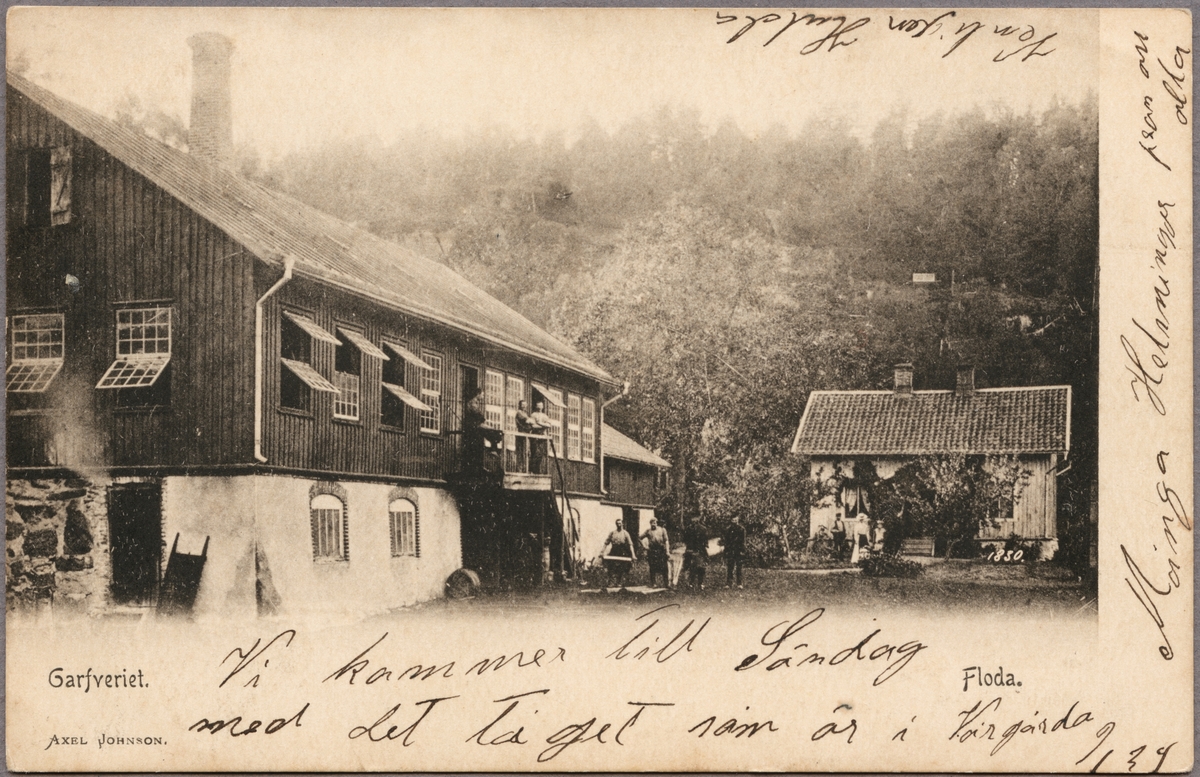 Vänligen Hulda
Många Helsningar från oss
alla
1850.
Garfveriet.
Floda.
Vi kommer till Söndag
med det tåget som är i Vårgårda
AXEL JOHNSON.